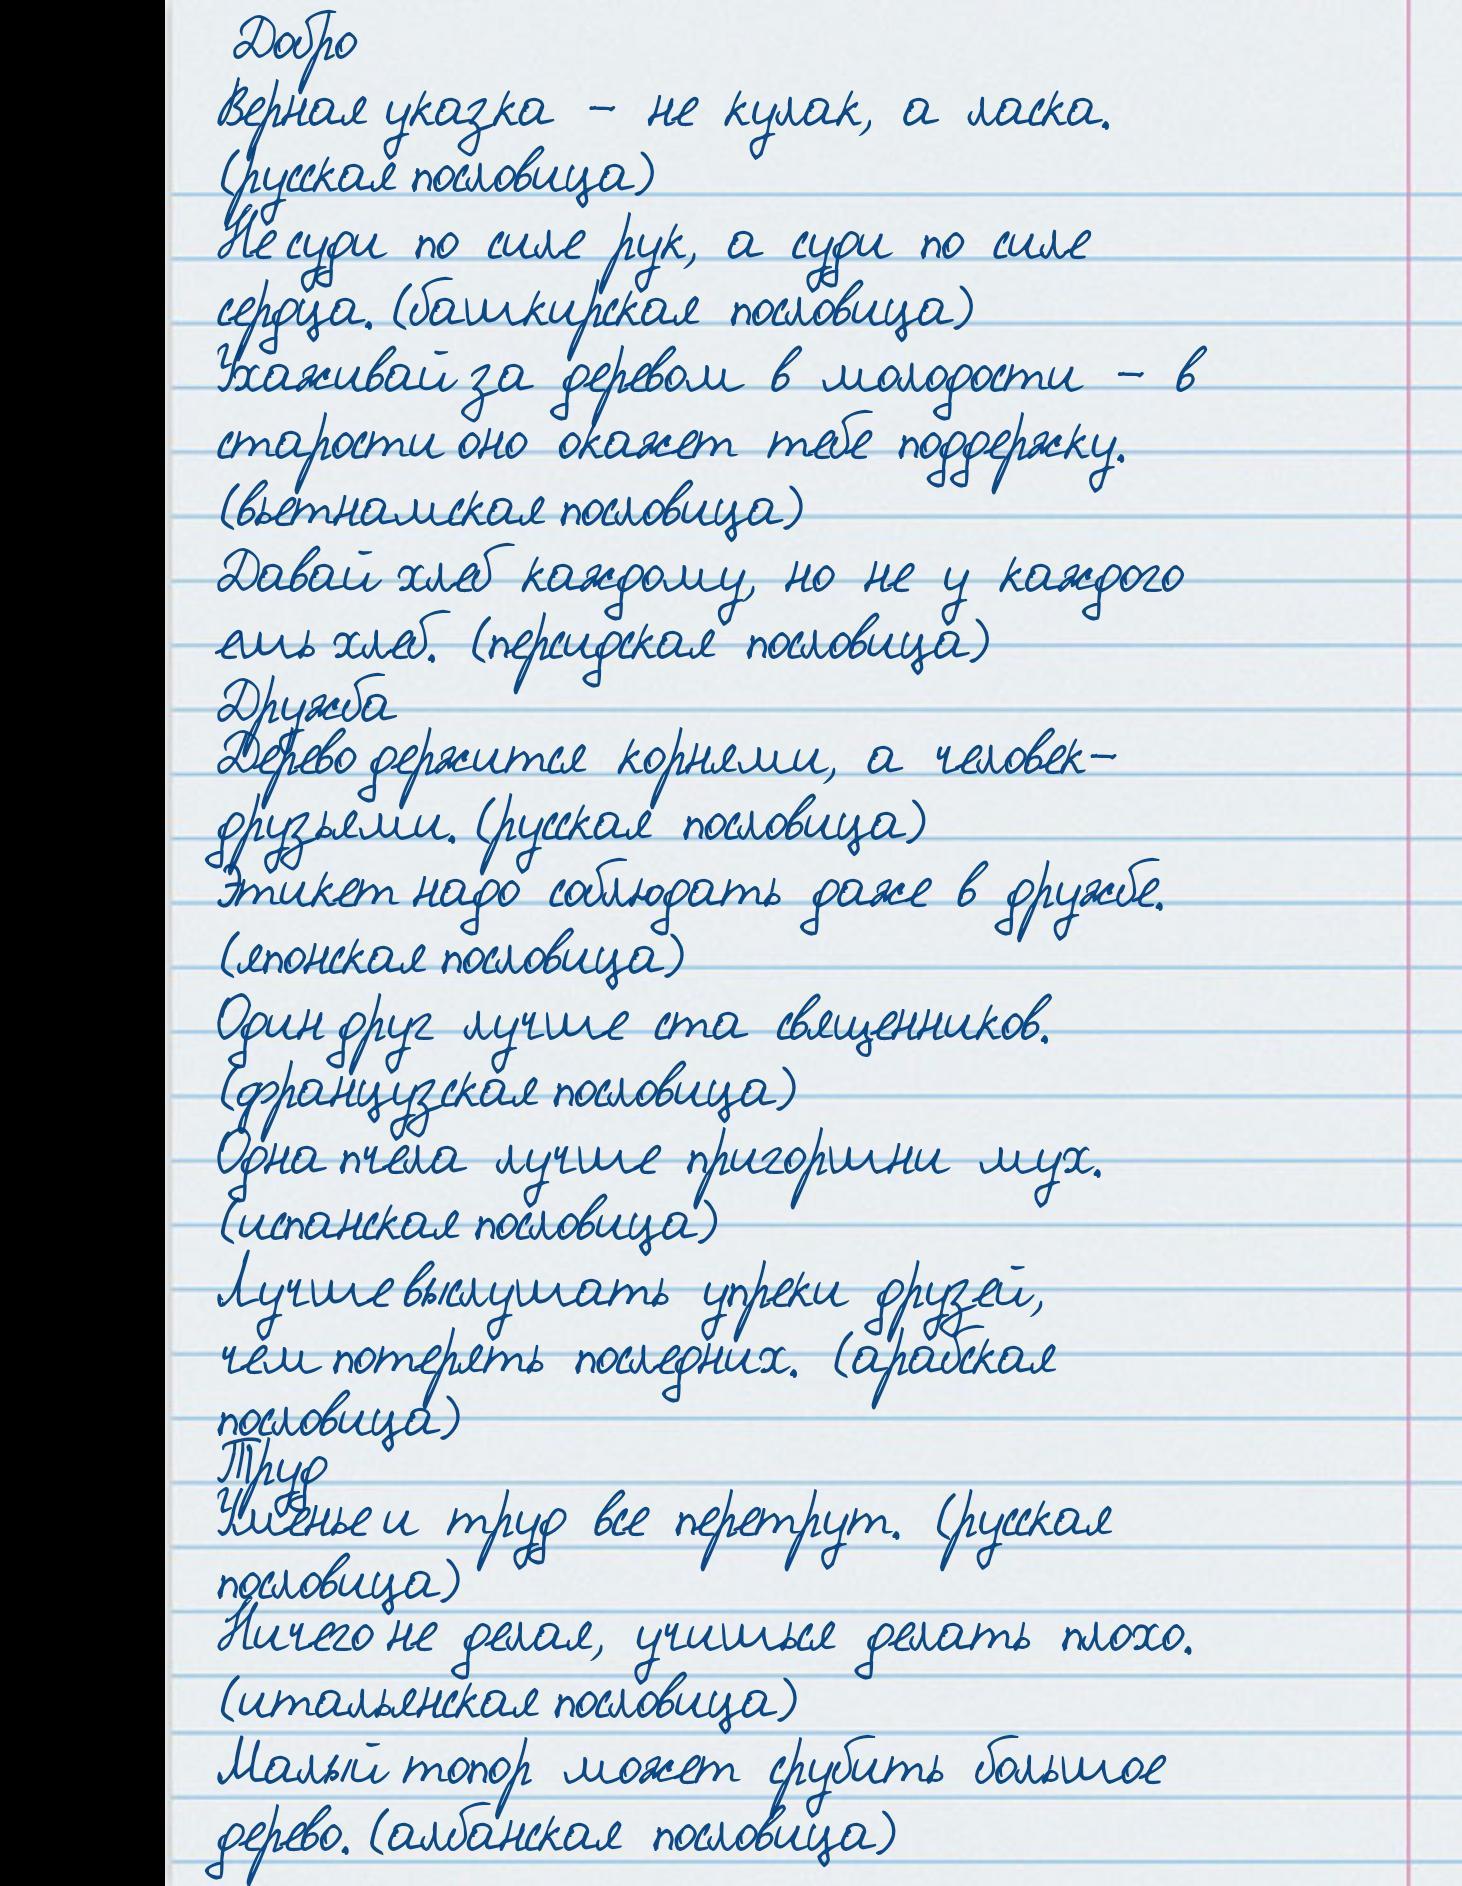 Добро
Верная указка - не кулак, а ласка.
(русская пословица)
Не суди по силе рук, а суди по силе
сердца. (башкирская пословица)
Ухаживай за деревом в молодости - в
старости оно окажет тебе поддержку.
(вьетнамская пословица)
Давай хлеб каждому, но не у каждого
ешь хлеб. (персидская пословица)
Дружба
Дерево держится корнями, а человек-
друзьями. (русская пословица)
Этикет надо соблюдать даже в дружбе.
(японская пословица)
Один друг лучше ста священников.
(французская пословица)
Одна пчела лучше пригоршни мух.
(испанская пословица)
Лучше выслушать упреки друзей,
чем потерять последних. (арабская
пословица)
Труд
Уменье и труд все перетрут. (русская
пословица)
Ничего не делая, учишься делать плохо.
(итальянская пословица)
Малый топор может срубить большое
дерево. (албанская пословица)